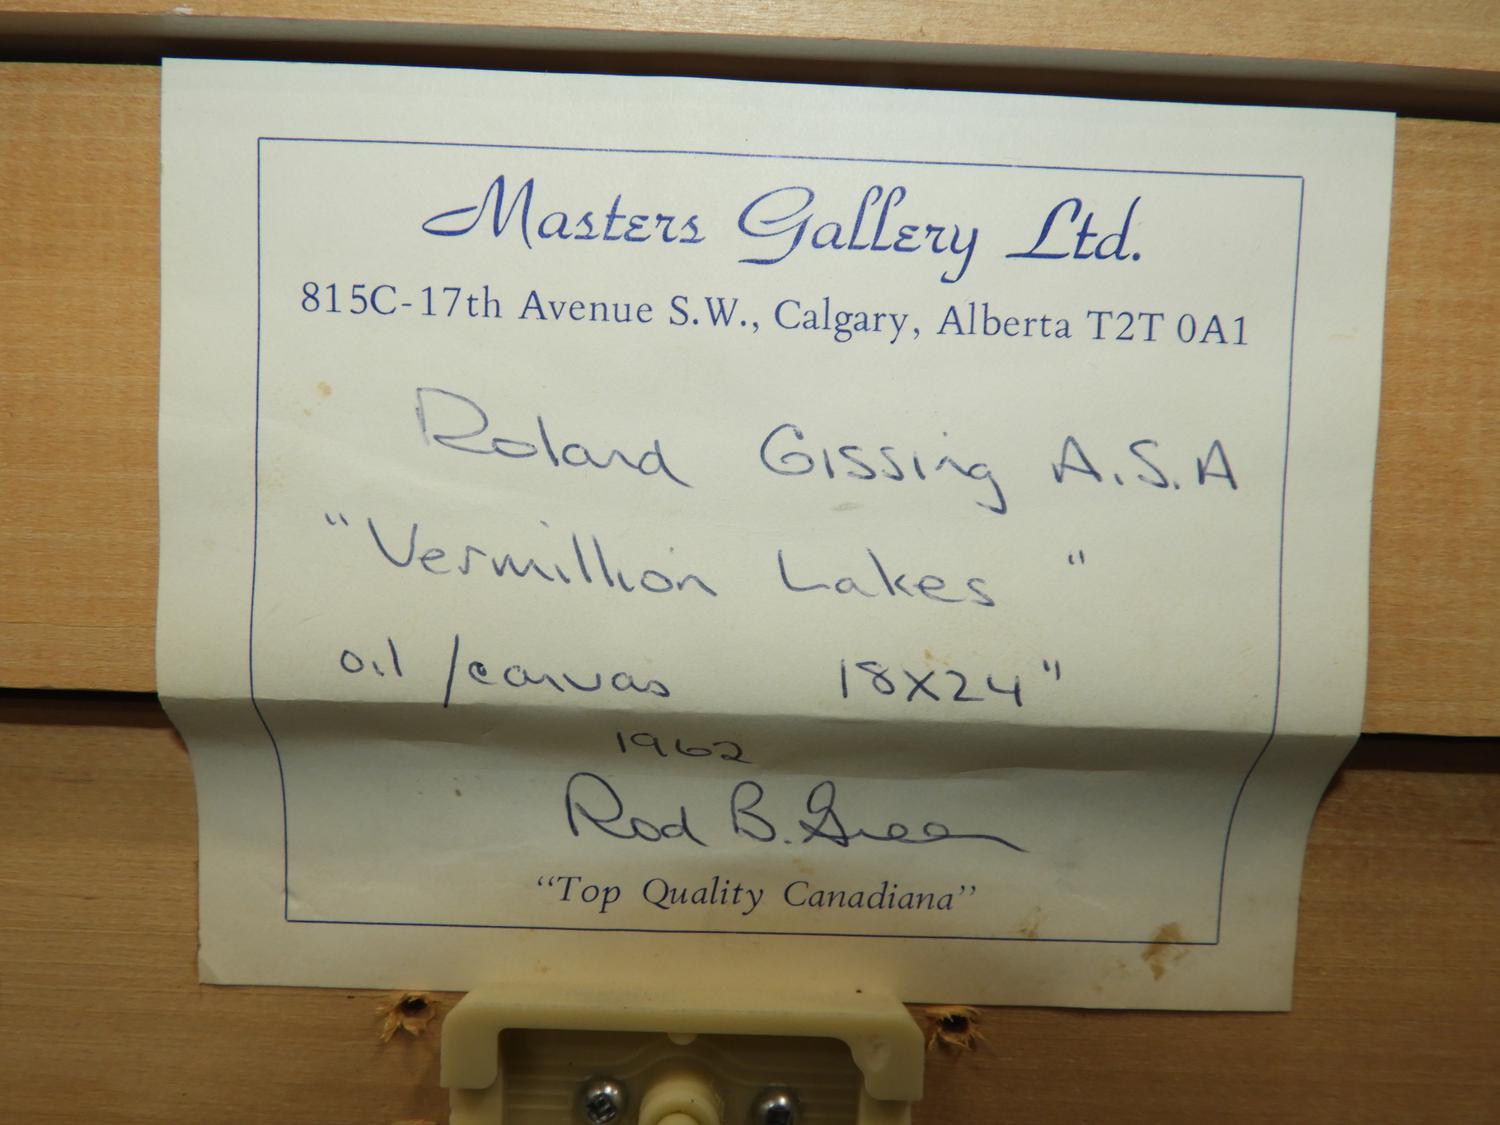 Masters Gallery Ltd.
815C-17th Avenue S.W., Calgary, Alberta T2T 0A1
Roland Gissing A.S.A
"Vermillion Lakes"
oil/canvas 18x24"
1962
Rod B. Green
"Top Quality Canadiana"